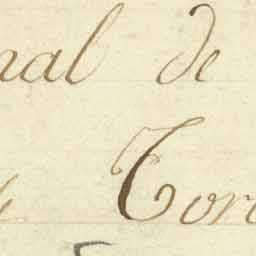 nal de
Tor